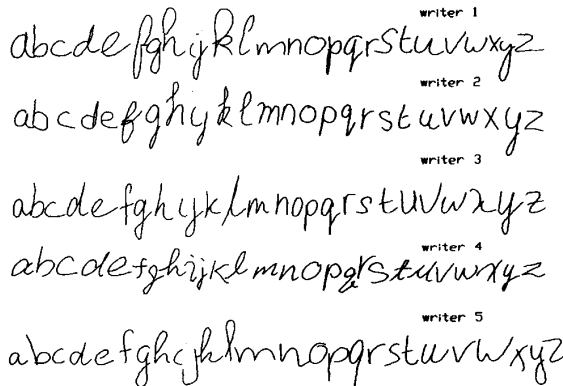 writer 1
abcdefghijklmnopqrstuvwxyz
writer 2
abcdefghijklmnopqrstuvwxyz
writer 3
abcdefghijklmnopqrstuvwxyz
writer 4
abcdefghijklmnopqrstuvwxyz
writer 5
abcdefghijklmnopqrstuvwxyz